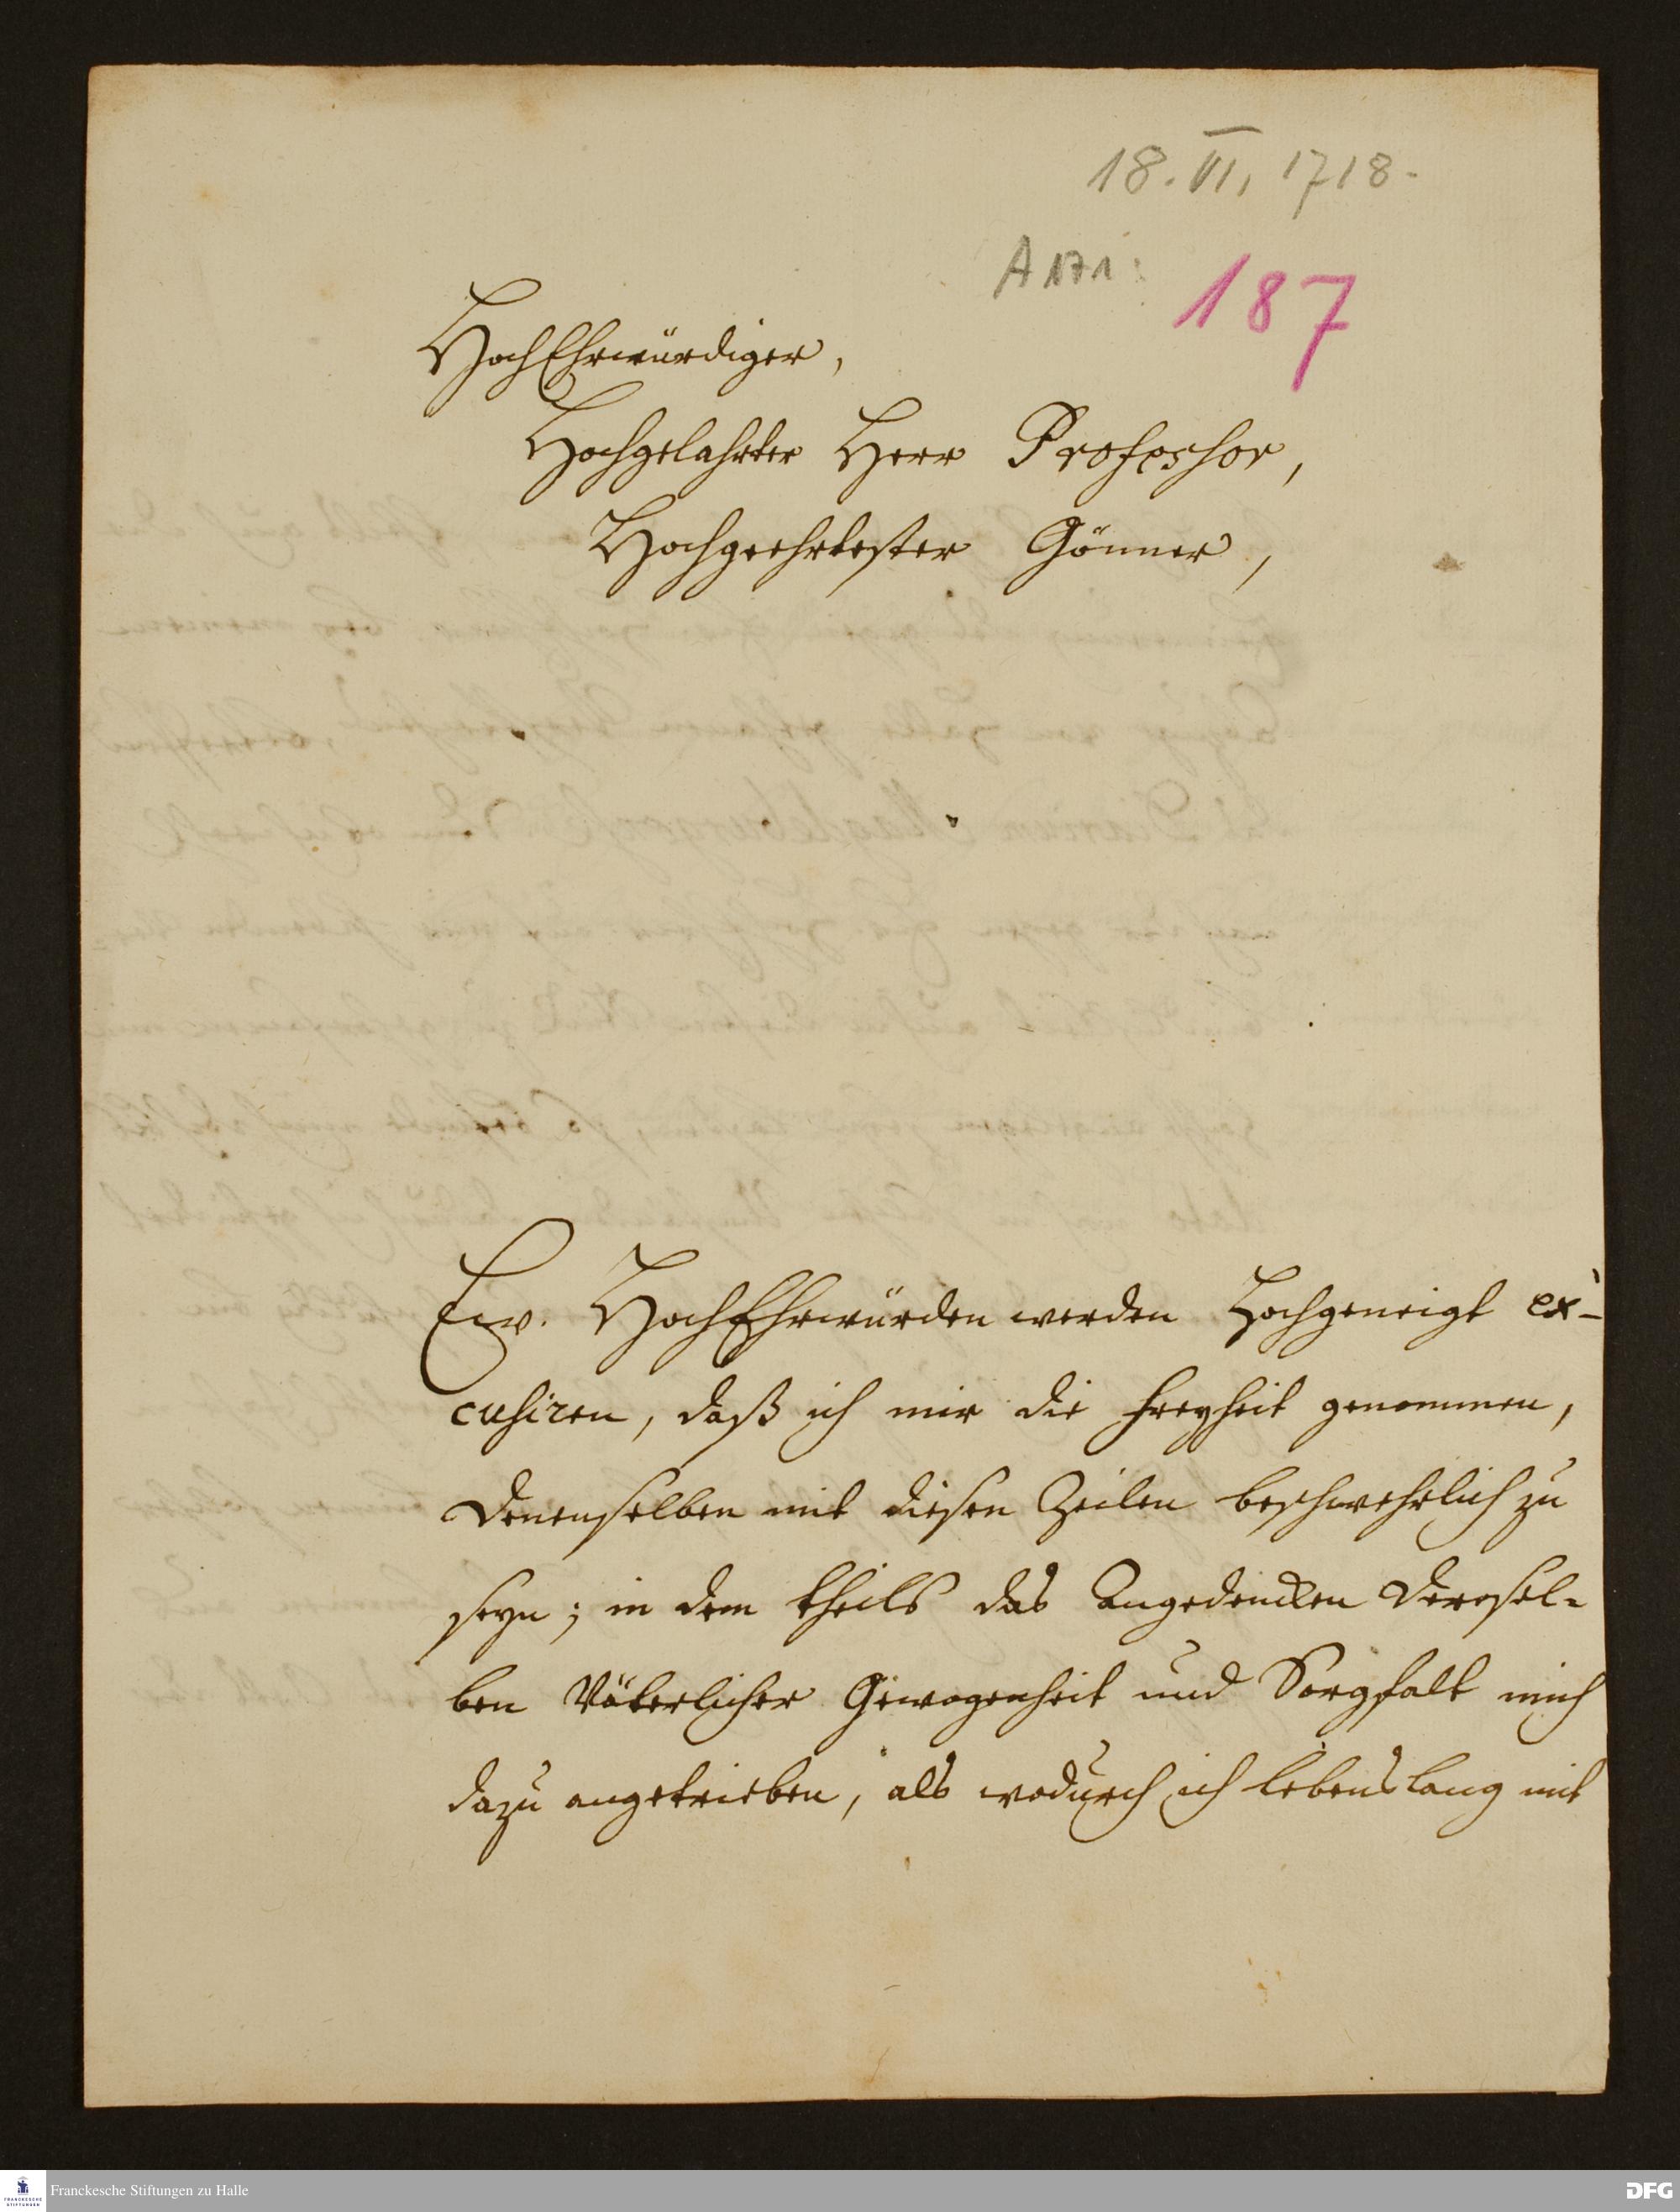 18. VI, 1718.
A 171:
187
HochEhrwürdiger,
Hochgelahrter Herr Professor,
Hochgeehrtester Gönner,
Ew. HochEhrwürden werden Hochgeneigt ex-
cusiren, daß ich mir die Freyheit genommen,
Denenselben mit diesen Zeilen beschwehrlich zu
seyn; in dem theils das Angedencken Derosel-
ben Väterlicher Gewogenheit und Sorgfalt mich
dazu angetrieben, als wodurch ich lebenslang mit
Franckesche Stiftungen zu Halle
DFG